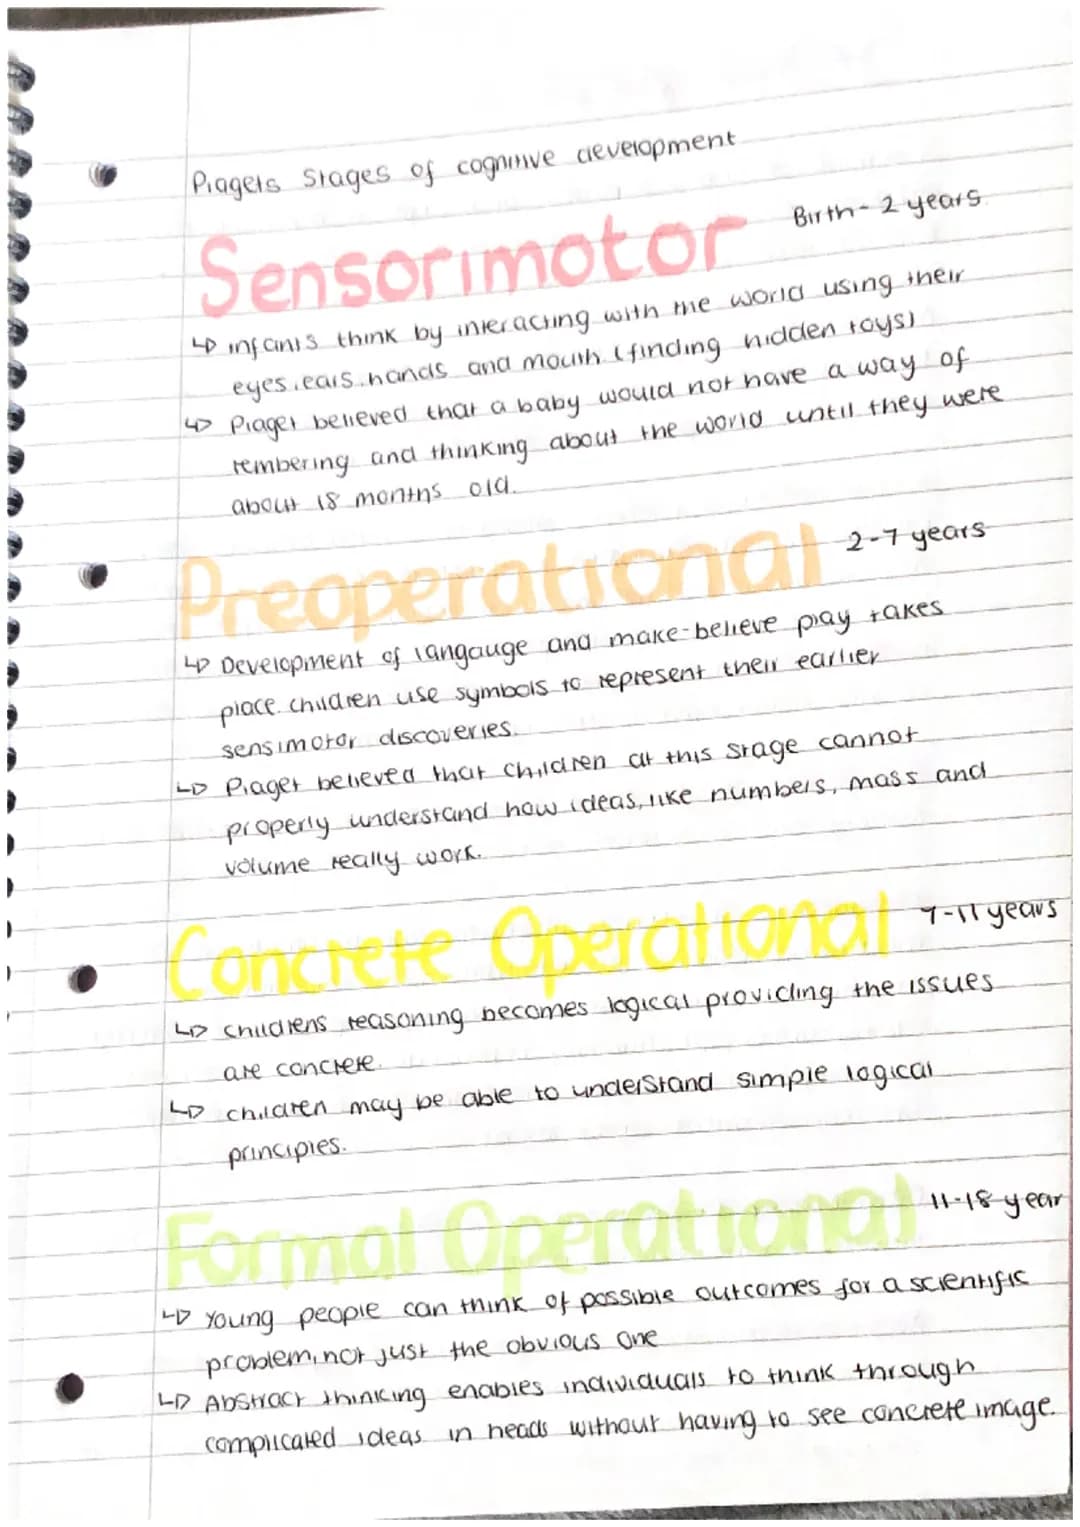 Piagets Stages of cognitive development
Sensorimotor Birth - 2 years
↳ infants think by interacting with the world using their
eyes, ears, hands and mouth (finding hidden toys)
↳ Piaget believed that a baby would not have a way of
rembering and thinking about the world until they were
about 18 months old.
Preoperational 2-7 years
↳ Development of langauge and make-believe play takes
place. children use symbols to represent their earlier
sensimotor discoveries.
↳ Piaget believed that children at this stage cannot
properly understand how ideas, like numbers, mass and
volume really work.
Concrete Operational 7-11 years
↳ childrens reasoning becomes logical providing the issues
are concrete.
↳ children may be able to understand simple logical
principles.
Formal Operational 11-18 year
↳ Young people can think of possible outcomes for a scientific
problem, not just the obvious one
↳ Abstract thinking enables individuals to think through
complicated ideas in heads without having to see concrete image.